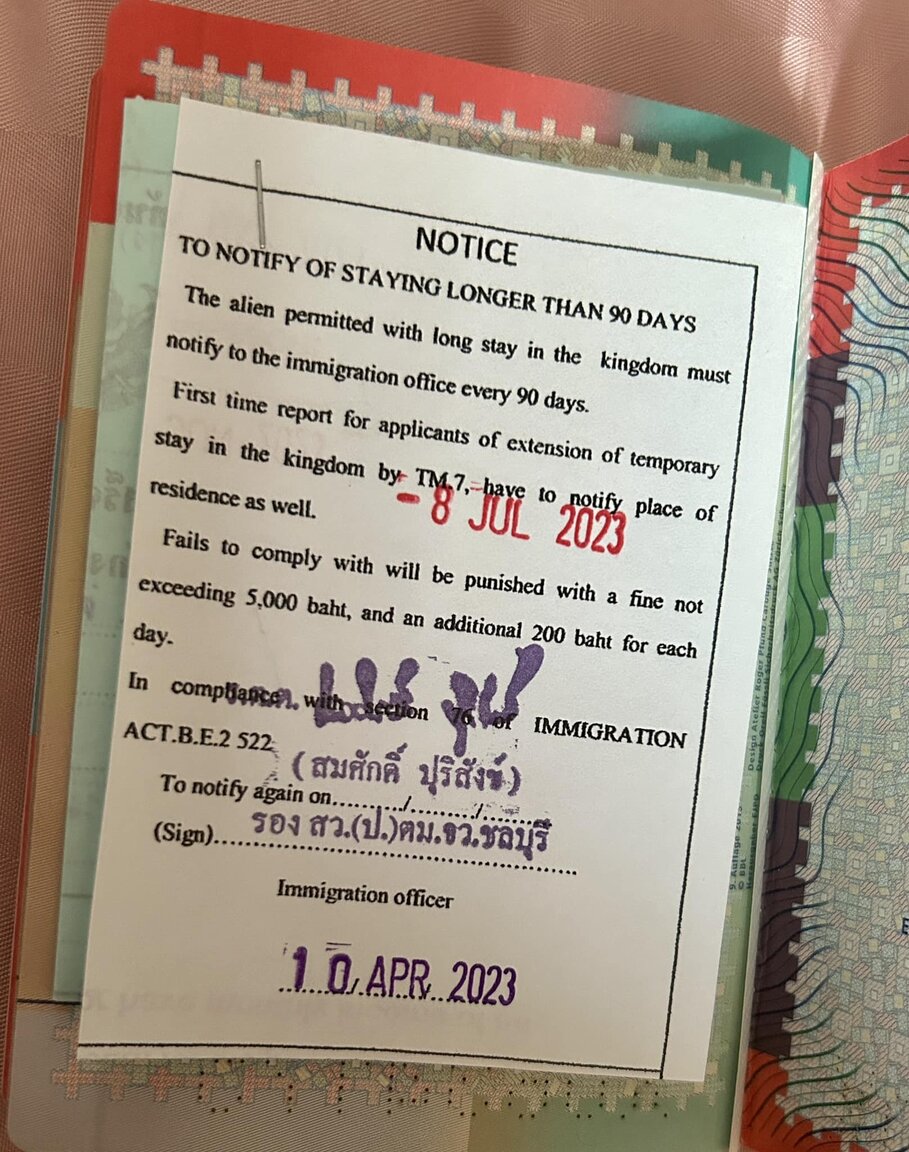 NOTICE
TO NOTIFY OF STAYING LONGER THAN 90 DAYS
The alien permitted with long stay in the kingdom must
notify to the immigration office every 90 days.
First time report for applicants of extension of temporary
stay in the kingdom by TM.7, have to notify place of
- 8 JUL 2023
residence as well.
Fails to comply with will be punished with a fine not
exceeding 5,000 baht, and an additional 200 baht for each
day.
In compliance with section 76 of IMMIGRATION
ACT.B.E.2 522
(สมศักดิ์ ปุริสังข์)
To notify again on........./........./.........
รอง สว.(ป.)ตม.จว.ชลบุรี
(Sign)......................................................
Immigration officer
10 APR 2023